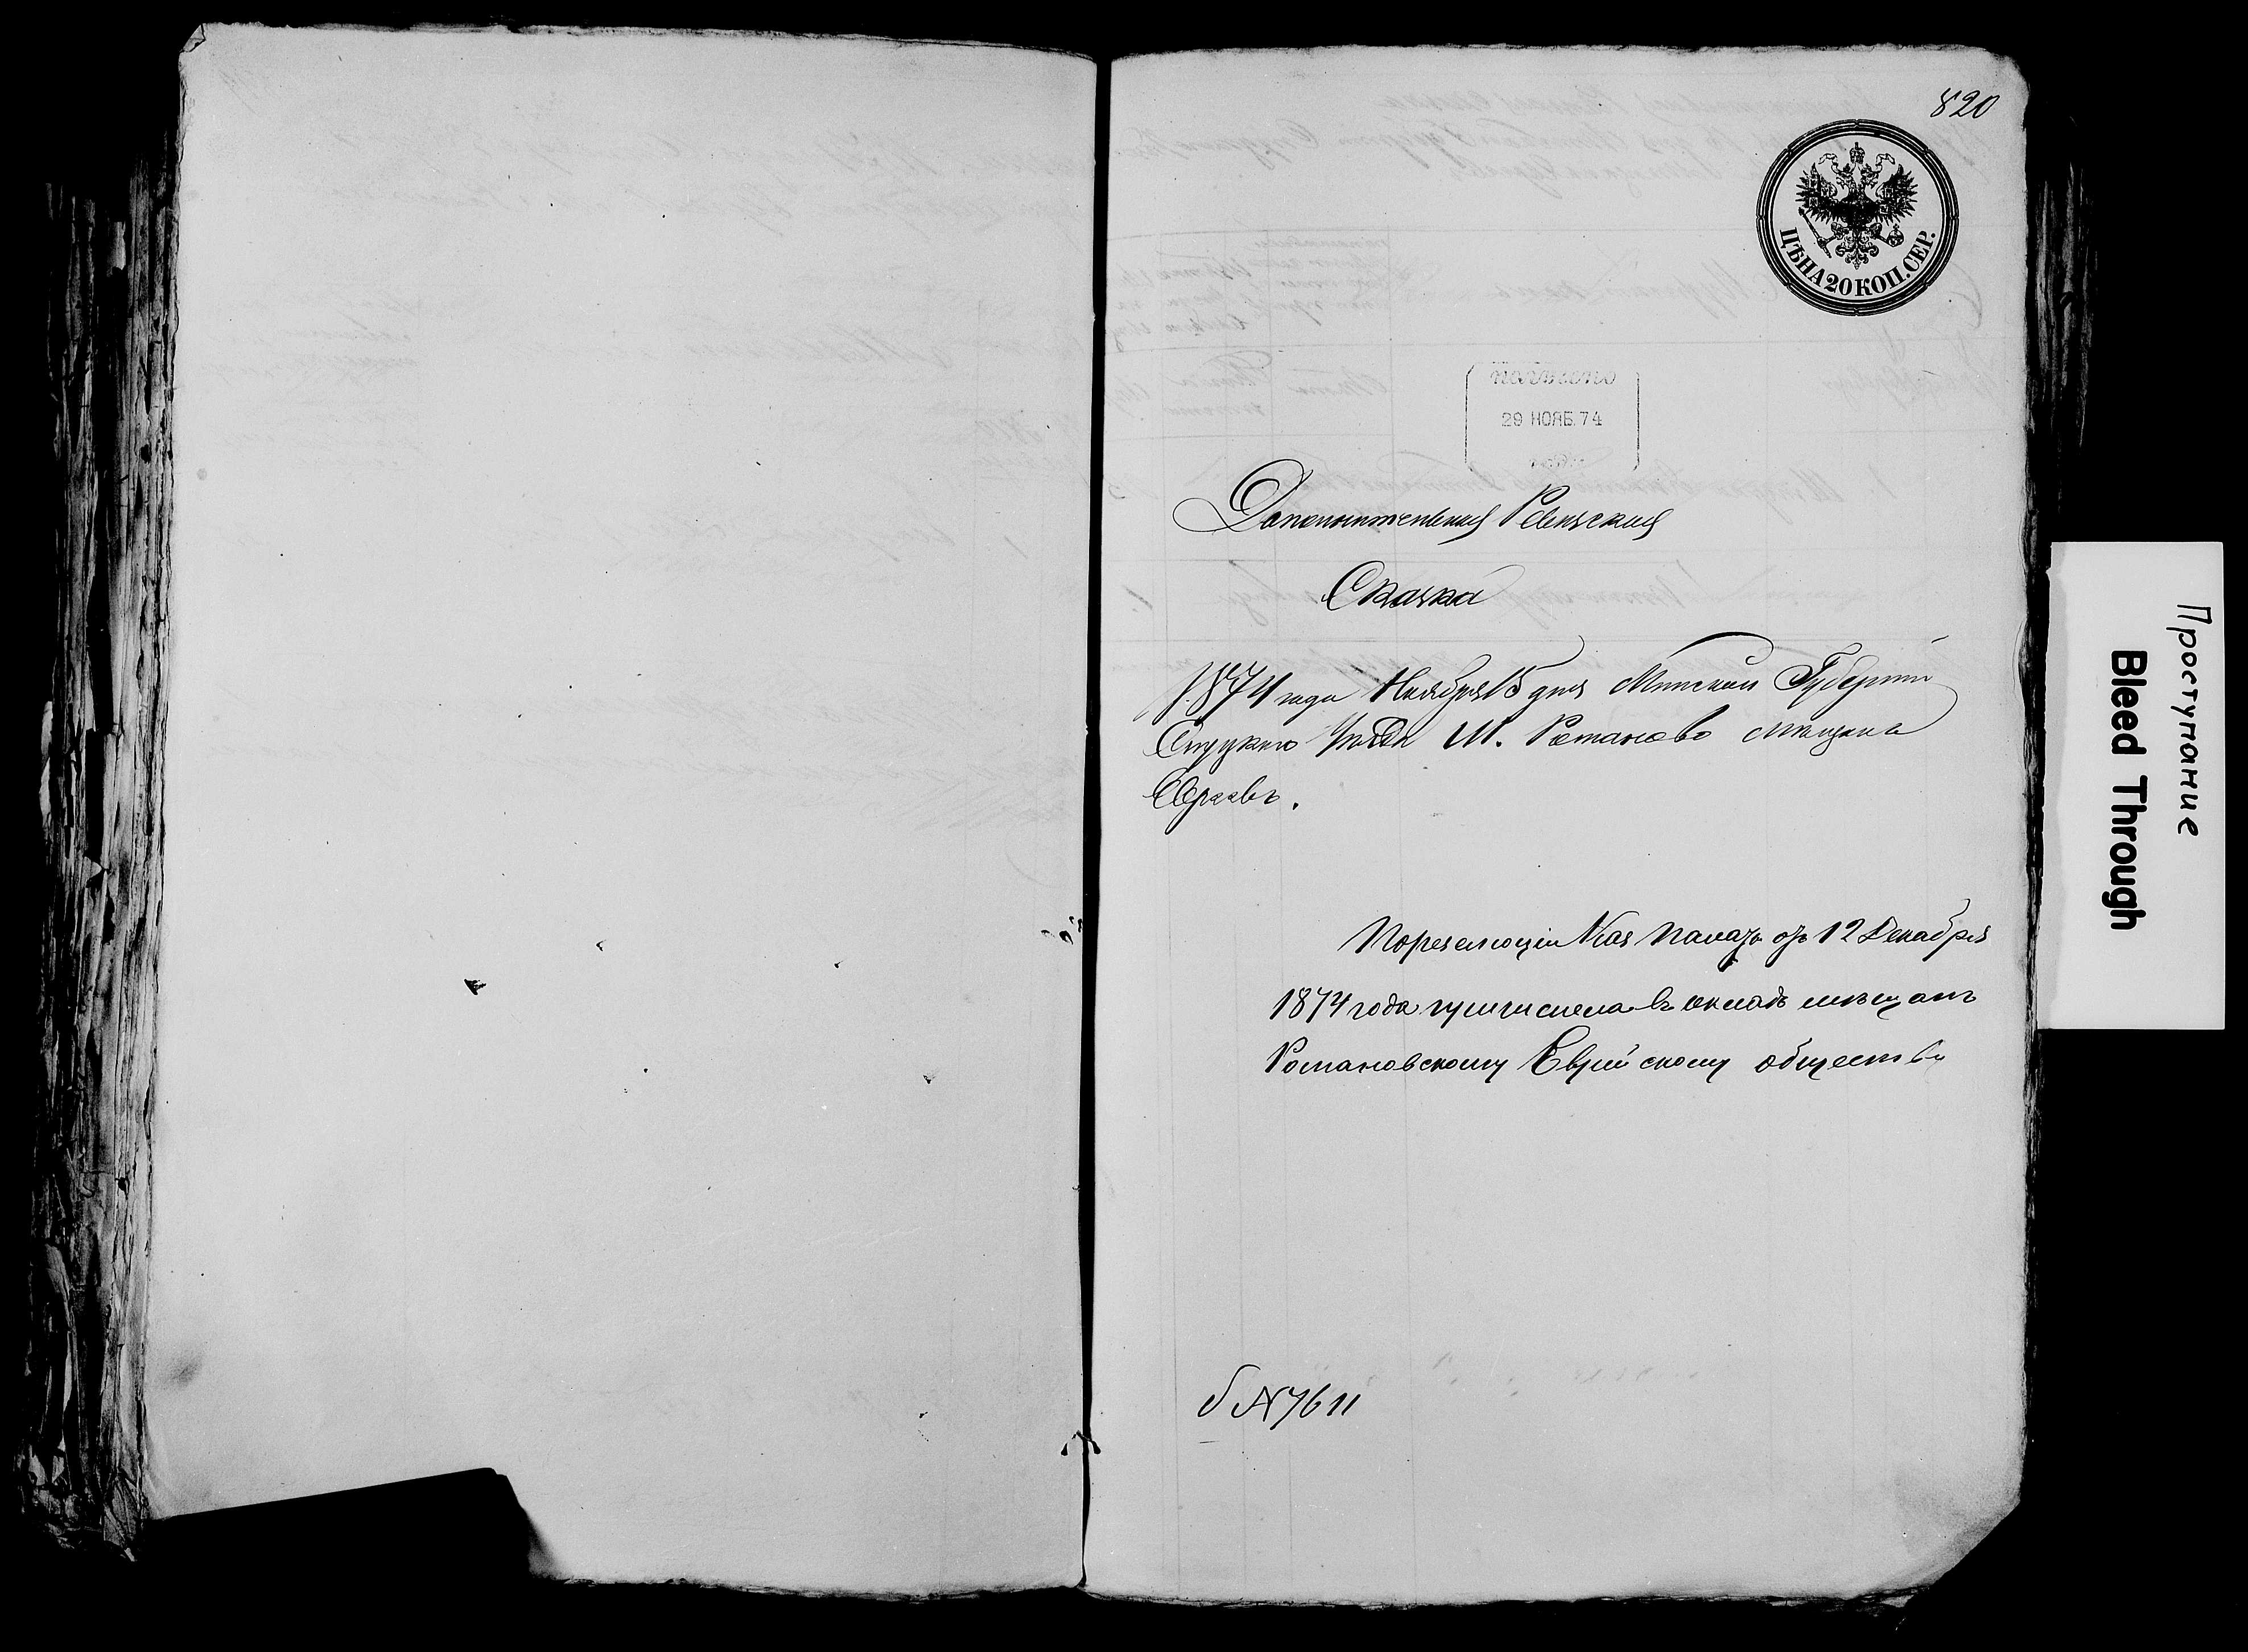 820
ЦѢНА 20 КОП. СЕР.
получено
29 НОЯБ. 74
Дополнительная Ревизская
Сказка
1874 года Ноября 15 дня Минской Губерніи
Слуцкаго Уѣзда М. Романово мѣщанъ
Евреевъ.
По резолюціи Каз Палаты отъ 12 Декабря
1874 года причислена въ окладъ мѣщанъ
Романовскому Еврейскому обществу
№ 7611
Проступание
Bleed Through